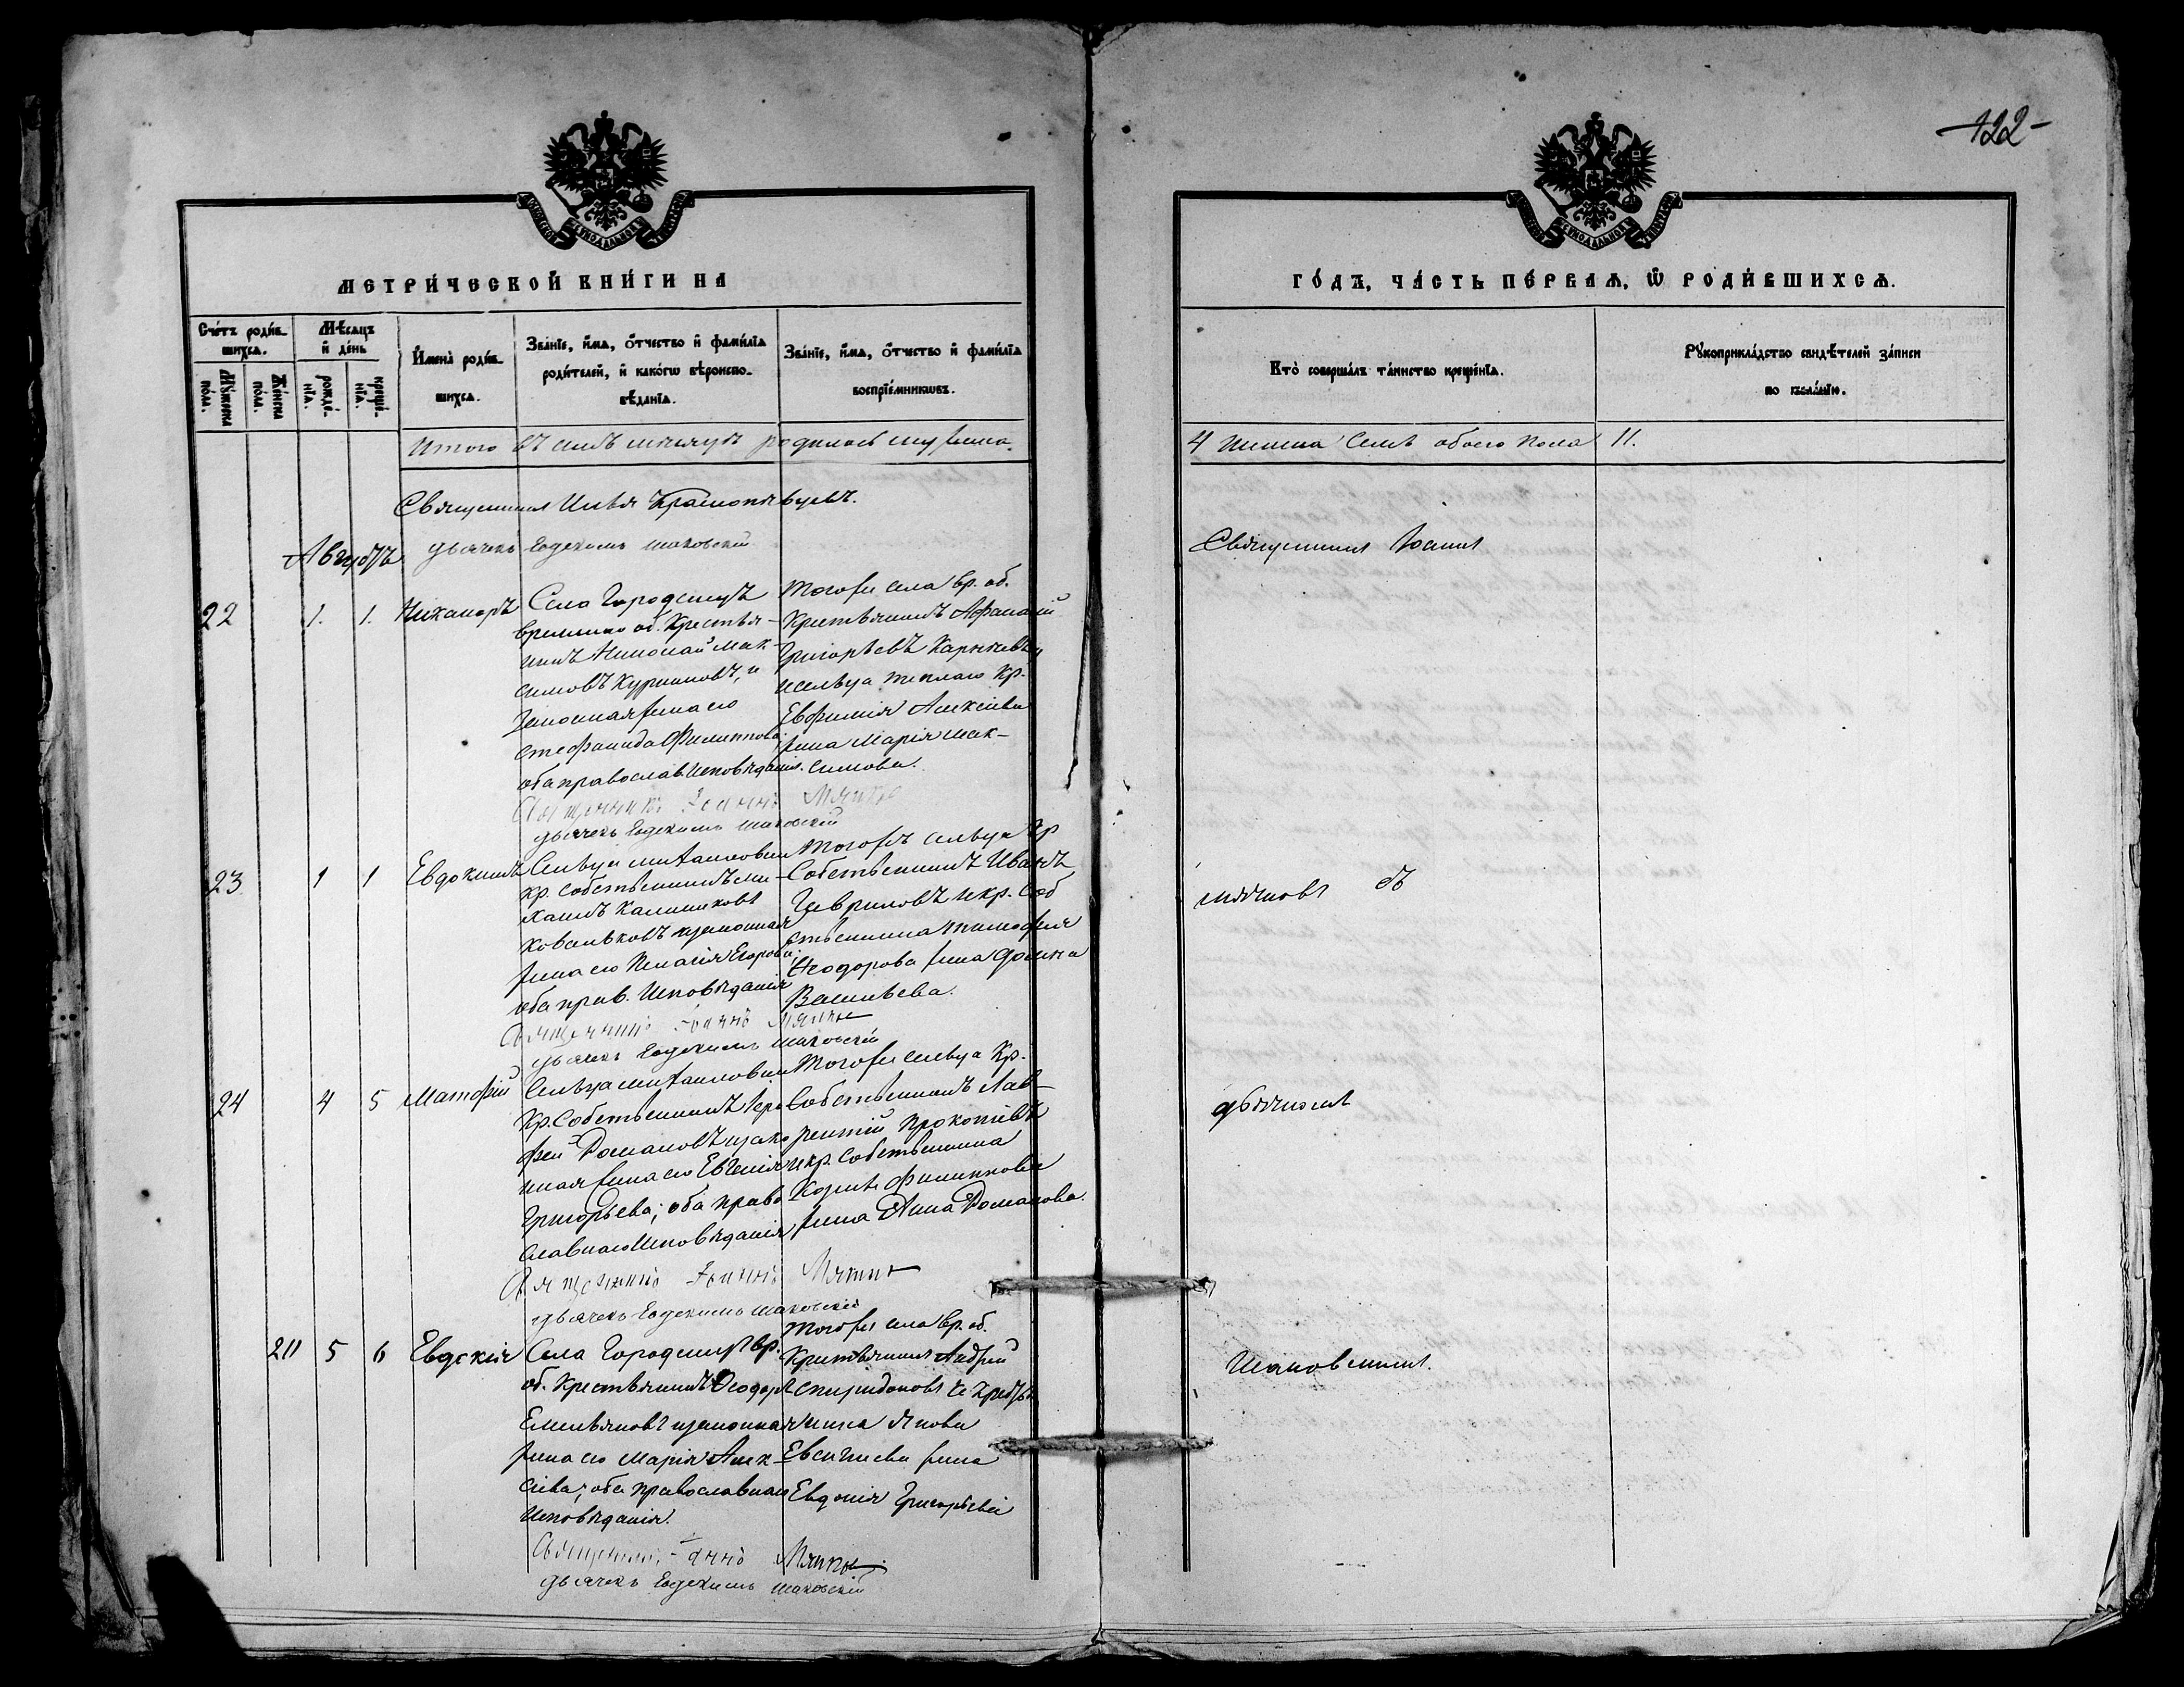 122
МЕТРИ́ЧЕСКОЙ КНИ́ГИ НА
ГО́ДЪ, ЧА́СТЬ ПЕ́РВАѦ, Ѿ РОДИ́ВШИХСѦ.
Сче́тъ роди́в-
шихсѧ.
Мꙋ́жеска по́ла.
Же́нска по́ла.
Мѣ́сѧцъ
и҆ де́нь
рожде́-нїѧ.
креще́-нїѧ.
И҆мена̀ роди́в-
шихсѧ.
Зва́нїе, и҆́мѧ, ѻ҆́тчество и҆ фами́лїѧ
роди́телей, и҆ како́гѡ вѣроиспо-
вѣ́данїѧ.
Зва́нїе, и҆́мѧ, ѻ҆́тчество и҆ фами́лїѧ
воспрїе́мникѡвъ.
Кто̀ соверша́лъ та́инство креще́нїѧ.
Рꙋкоприкла́дство свидѣ́телей за́писи
по жела́нїю.
Итого въ семъ мѣсяцѣ родилось мужеска
4 женска семь обоего пола 11.
Священникъ Илья
дьячекъ Евдокимъ Маковскій
Августъ
Священникъ Іоаннъ
22 1. 1. Никаноръ
Село Городищъ
временно об. Крестья-
нинъ Николай Мак-
симовъ Куриновъ, и
законная жена его
Стефанида Филиппова;
оба православ. Исповѣданія.
Тогоже села вр. об.
Крестьянинъ Афанасій
Григорьевъ
и сельца Теплаго Кр.
Евфимія Алексѣева
жена Марія Мак-
симова.
Священникъ Іоаннъ Мячковъ
дьячекъ Евдокимъ Маковскій
23 1 1 Евдокимъ
Сельца Михаиловки
кр. собственникъ Ми-
хаилъ Калинниковъ
Ковальковъ и законная
жена его Пелагія Егорова;
оба прав. Исповѣданія
Тогожъ сельца Кр
Собственникъ Иванъ
Гавриловъ и кр. соб
ственника Тимофея
Ѳеодорова жена
Васильева.
Мячковъ съ
Священникъ Іоаннъ Мячковъ
дьячекъ Евдокимъ Маковскій
24 4 5 Матфій
Сельца Михаиловки
Кр. Собственникъ Іеро
фей Романовъ и зако
нная жена его Евгенія
Григорьева; оба право
славнаго Исповѣданія
Тогоже сельца Кр.
Собственникъ Лав-
рентій Прокопіевъ
и кр. собственника
Филиппова
жена Анна Романова.
дьячкомъ
Священникъ Іоаннъ Мячковъ
дьячекъ Евдокимъ Маковскій
20 5 6 Евдокія
Села Городищъ вр.
об. Крестьянинъ Ѳеодоръ
Емельяновъ и законная
жена его Марія Алек-
сѣева; оба православнаго
Исповѣданія.
Тогоже села вр. об.
Крестьянинъ Андрей
Спиридоновъ и Кресть
янина Якова
Евсигнеева жена
Евдокія Григорьева
Маковскимъ.
Священникъ Іоаннъ Мячковъ
дьячекъ Евдокимъ Маковскій